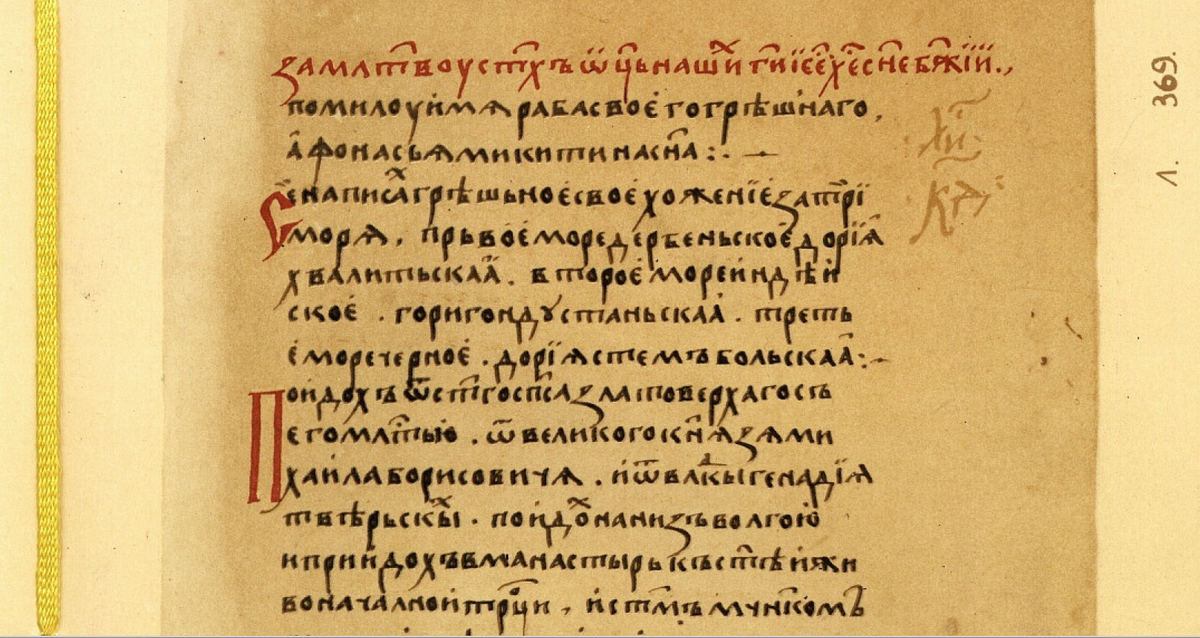 за млⷮ҇воу стⷯ҇ъ ѿц҃ь нашиⷯ гⷭ҇и їсе҃ хе҃ сн҃е бж҃їи.,
помилоуи мѧ раба своег҇о грѣшнаго,
афонасьѧ микитина сн҃а :. —
Се написаⷯ грѣшьное свое хоженїе за три
морѧ, прьвое море дербеньское дорїꙗ
хвалитьскаа. второе море индѣи
ское. гори гондустаньскаа. треть
е море черное. дорїꙗ стемъбольскаа :—
Поидохъ ѿ ст҃го сп҃са златоверхаго съ
его млⷭ҇тью. ѿ великого кн҃ѧзѧ ми
хаила борисовичѧ. и ѿ влⷣкы генадїѧ
твѣрьскыⷯ. поидоⷯ на низъ волгою
и приидохъ в манастырь къ ст҃ѣи жи
воначалнои трⷪ҇ци, и ст҃мъ мчн҃комъ
л. 369.